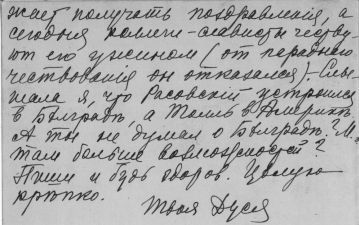 жает получать поздравленія, а
сегодня коллеги-слависты честву-
ют его ужином (от парадного
чествования он отказался). Слы-
шала я, что Расовскій устроился
в Бѣлградѣ, а Толль в Америкѣ
А ты не думал о Бѣлградѣ? М.
там больше возможностей?
Пиши и будь здоров. Целую
крѣпко.
Твоя Дуся